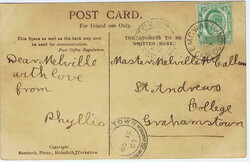 POST CARD.
For Inland use Only.
This Space as well as the back may now
be used for communication.
Post Office Regulation.
THE ADDRESS TO BE
WRITTEN HERE.
Dear Melville
with love
from
Phyllis
Master Melville Hallam
St. Andrews
College
Grahamstown